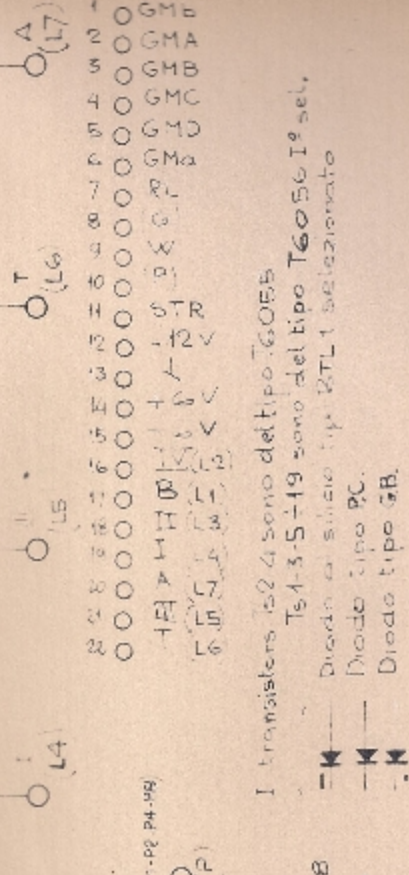 1 GMb
2 GMA
3 GMB
4 GMC
5 GMD
6 GMa
7 RL
8 G
9 W
10 (P)
11 STR
12 -12 V
13
14 +6V
15 V
16 IV (L2)
17 B (L1)
18 II (L3)
19 I L4
20 A L7
21 (L5)
22 T L6
A
(L7)
T
(L6)
L5
L4
I transistors Ts2 4 sono del tipo T6055
Ts1-3-5÷19 sono del tipo T6056 I° sel.
Diodo a silicio tipo RTL1 selezionato
Diodo tipo P.C.
Diodo tipo G.B.
-P2 P4-
P)
8